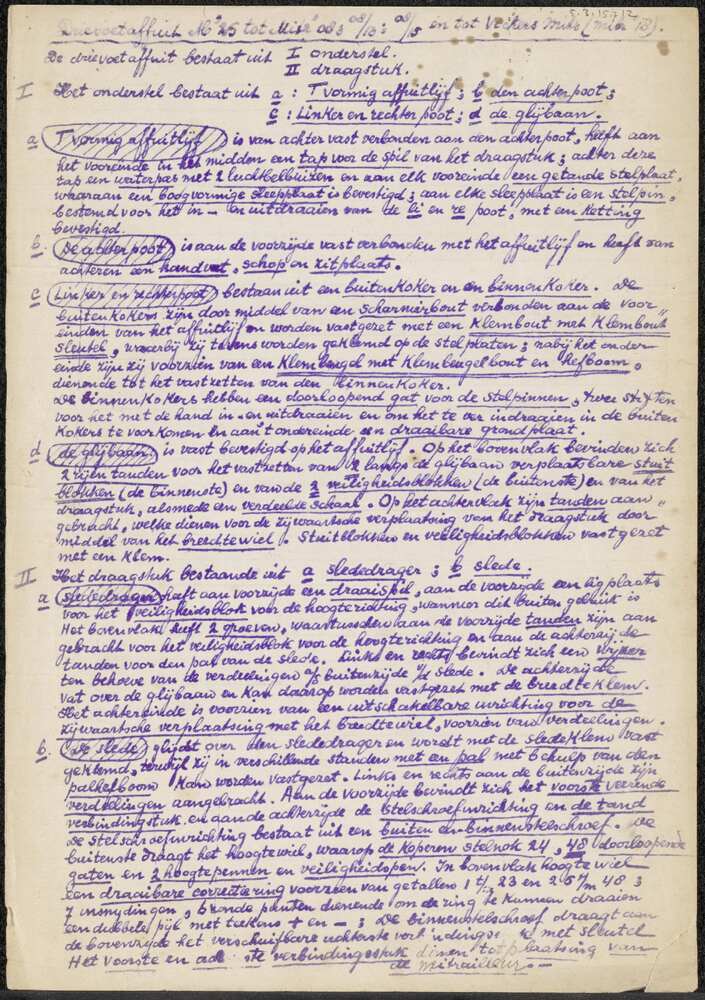 Drievoetaffuit M° 25 tot Mitr 08s 08/13; 08/15 en tot Vickers mitr (mitr 13).
De drievoetaffuit bestaat uit I onderstel.
II draagstuk.
I Het onderstel bestaat uit a: T vormig affuitlijf; b den achterpoot;
c: Linker en rechter poot; d de glijbaan.
a T vormig affuitlijf is van achter vast verbonden aan den achterpoot, heeft aan
het vooreinde in het midden een tap voor de spil van het draagstuk; achter deze
tap een waterpas met 2 luchtbelbuizen en aan elk vooreinde een getande stelplaat,
waaraan een boogvormige sleepplaat is bevestigd; aan elke sleepplaat is een stelpin,
bestemd voor het in- en uitdraaien van de li en re poot, met een ketting
bevestigd.
b. De achterpoot is aan de voorzijde vast verbonden met het affuitlijf en heeft van
achteren een handvat, schop en zitplaats.
c Linker en rechterpoot bestaan uit een buitenkoker en een binnenkoker. De
buitenkokers zijn door middel van een scharnierbout verbonden aan de voor"
einden van het affuitlijf en worden vastgezet met een klembout met klembout
sleutel, waarbij zij tevens worden geklemd op de stelplaten; nabij het onder
einde zijn zij voorzien van een klembeugel met klembeugelbout en hefboom,
dienende tot het vastzetten van den binnenkoker.
De binnenkokers hebben een doorloopend gat voor de stelpinnen, twee stiften
voor het met de hand in- en uitdraaien en om het te ver indraaien in de buiten
kokers te voorkomen en aan 't ondereinde een draaibare grondplaat.
d de glijbaan is vast bevestigd op het affuitlijf. Op het bovenvlak bevinden zich
2 rijen tanden voor het vastzetten van 2 langs de glijbaan verplaatsbare stuit
blokken (de binnenste) en van de 2 veiligheidsblokken (de buitenste) en van het
draagstuk, alsmede een verdeelde schaal. Op het achtervlak zijn tanden aan"
gebracht, welke dienen voor de zijwaartsche verplaatsing van het draagstuk door
middel van het breedtewiel. Stuitblokken en veiligheidsblokken vastgezet
met een klem.
II Het draagstuk bestaande uit a slededrager; b slede.
a slededrager heeft aan voorzijde een draaispil, aan de voorzijde een ligplaats
voor het veiligheidsblok voor de hoogterichting, wanneer dit buiten gebruik is
Het bovenvlak heeft 2 groeven, waartusschen aan de voorzijde tanden zijn aan
gebracht voor het veiligheidsblok voor de hoogterichting en aan de achterzijde
tanden voor den pal van de slede. Links en rechts bevindt zich een wijzer
ten behoeve van de verdeelingen a/d buitenzijde v/d slede. De achterzijde
vat over de glijbaan en kan daarop worden vastgezet met de breedteklem.
Het achtereinde is voorzien van een uitschakelbare inrichting voor de
zijwaartsche verplaatsing met het breedtewiel, voorzien van verdeelingen.
b. De slede glijdt over den slededrager en wordt met de sledeklem vast
geklemd, terwijl zij in verschillende standen met en pal met behulp van den
palhefboom kan worden vastgezet. Links en rechts aan de buitenzijde zijn
verdeelingen aangebracht. Aan de voorzijde bevindt zich het voorste veerende
verbindingstuk, en aan de achterzijde de stelschroefinrichting en de tand
De stelschroefinrichting bestaat uit een buiten en binnenstelschroef. De
buitenste draagt het hoogtewiel, waarop de koperen stelnok 24, 48 doorloopende
gaten en 2 hoogtepennen en veiligheidspen. In bovenvlak hoogtewiel
een draaibare correctiering voorzien van getallen 1 t/m 23 en 25 t/m 48;
7 insnijdingen, 3 ronde punten dienende om de ring te kunnen draaien
een dubbele pijl met tekens + en -; De binnenstelschroef draagt aan
de bovenzijde het verschuifbare achterste verbindings met sleutel
Het voorste en ste verbindingsstuk dienen tot plaatsing van
de mitrailleur. -